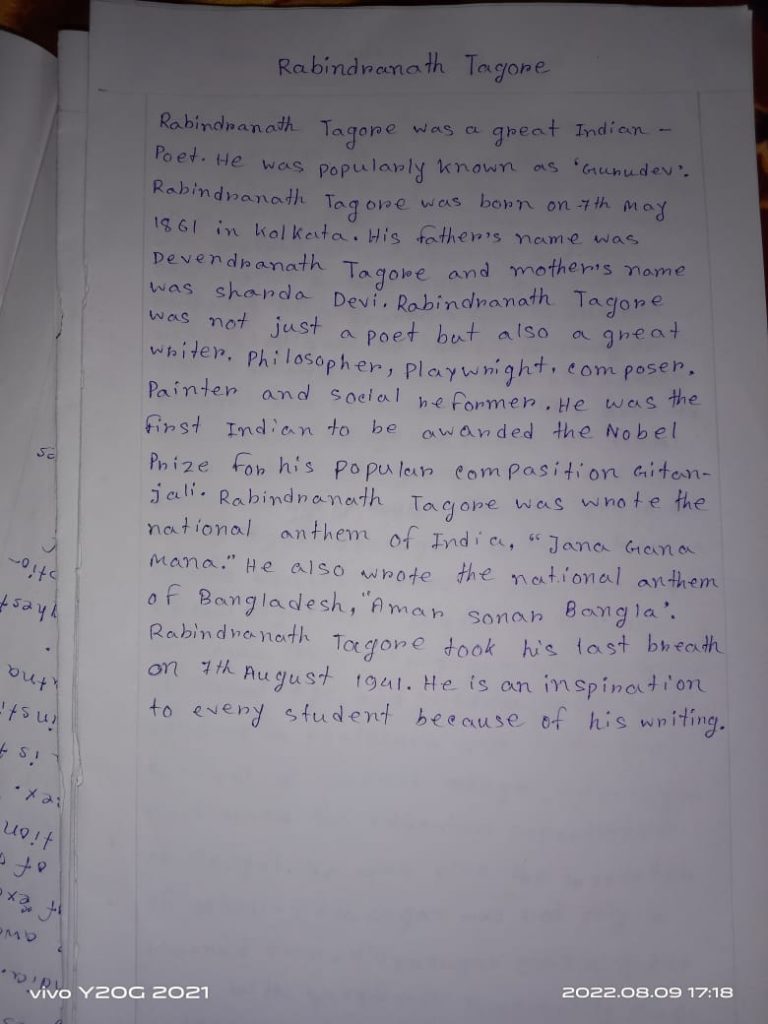 Rabindranath Tagore
Rabindranath Tagore was a great Indian -
Poet. He was popularly known as 'Gurudev'.
Rabindranath Tagore was born on 7th May
1861 in Kolkata. His father's name was
Devendranath Tagore and mother's name
was sharda Devi. Rabindranath Tagore
was not just a poet but also a great
writer. Philosopher, Playwright, composer,
Painter and social reformer. He was the
first Indian to be awarded the Nobel
Prize for his popular compasition Gitan-
jali. Rabindranath Tagore was wrote the
national anthem of India, "Jana Gana
Mana." He also wrote the national anthem
of Bangladesh, "Amar sonar Bangla'.
Rabindranath Tagore took his last breath
on 7th August 1941. He is an inspiration
to every student because of his writing.
vivo Y20G 2021
2022.08.09 17:18